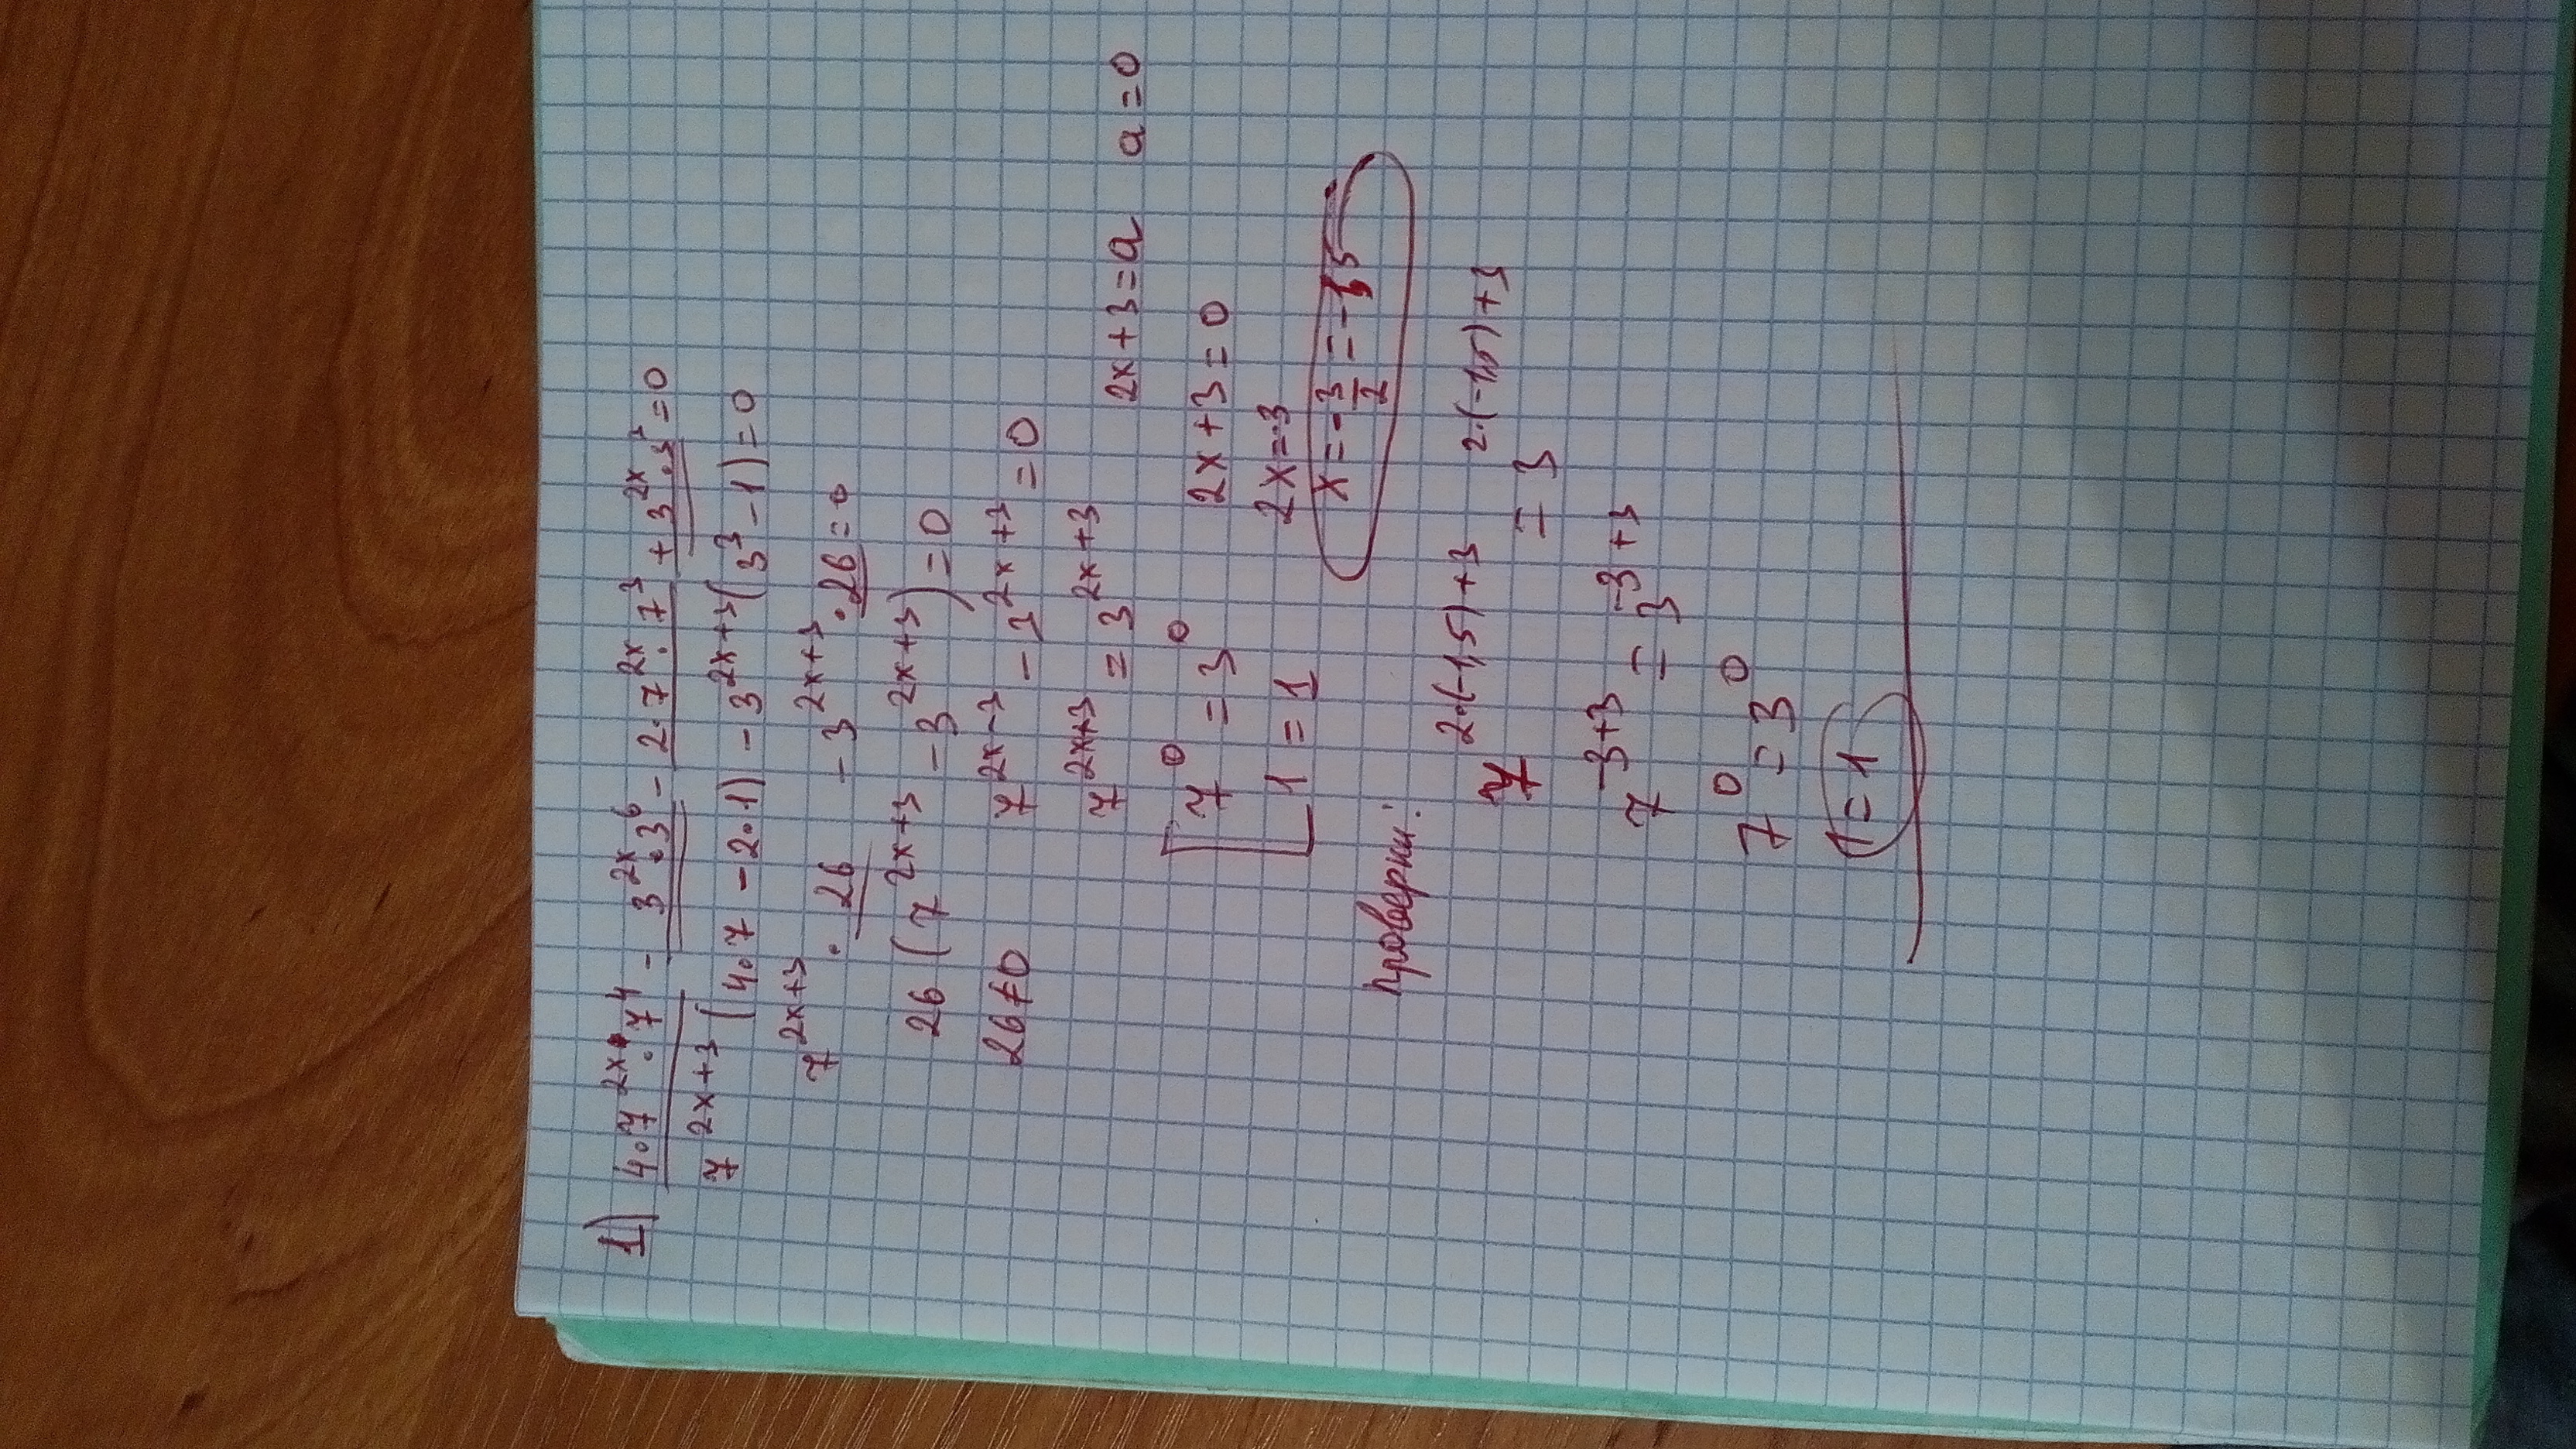 1) 4·7^2x·7^4 - 3^2x·3^6 - 2·7^2x·7^3 + 3^2x·3^3=0
7^2x+3(4·7-2·1)-3^2x+3(3^3-1)=0
7^2x+3·26-3^2x+3·26=0
26(7^2x+3-3^2x+3)=0
26≠0 7^2x-3-3^2x+3=0
7^2x+3=3^2x+3 2x+3=a a=0
7^0=3^0 2x+3=0
1=1 2x=-3
x=-3/2=-1,5
проверки:
7^2·(-1,5)+3=3^2·(-1,5)+3
7^-3+3=3^-3+3
7^0=3^0
1=1